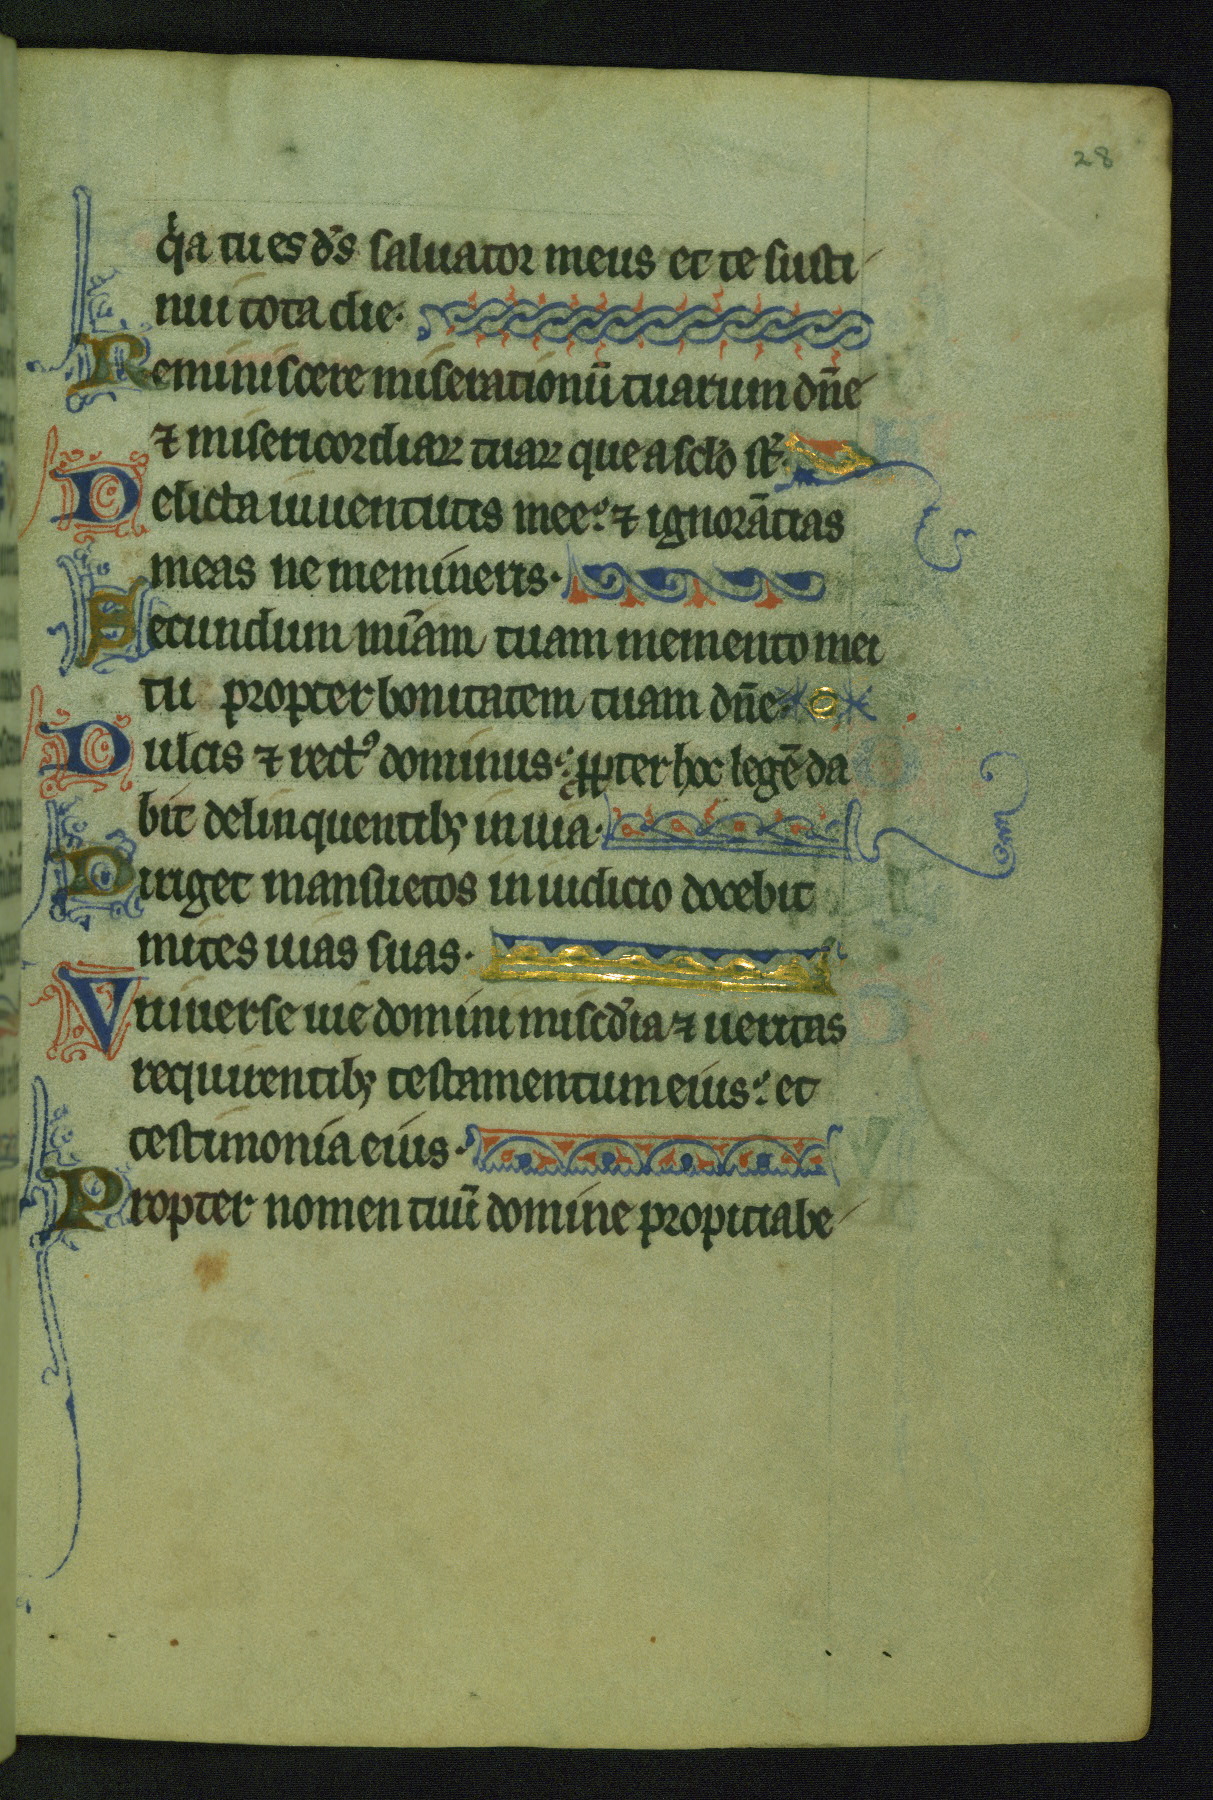 28
qͥa tu es d̄s saluator meus et te susti
nui tota die.
Reminiscere miserationū tuarum dn̄e
⁊ misericordiaꝝ tuaꝝ que a sc̄lo st̄.
Delicta iuuentutis mee: ⁊ ignorātias
meas ne memineris.
Secundum mīam tuam memento mei
tu propter bonitatem tuam dn̄e.
Dulcis ⁊ rectꝰ dominus: ꝓpter hoc legē da
bit delinquentibꝫ in uia.
Diriget mansuetos in iudicio docebit
mites uias suas.
Vniuerse uie domini misc̄dia ⁊ ueritas
requirentibꝫ testamentum eius: et
testimonia eius.
Propter nomen tuū domine propitiabe